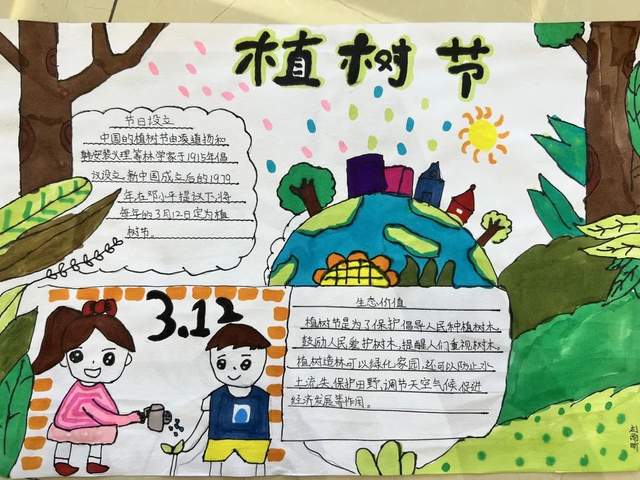 植树节
节日设立
中国的植树节由凌道扬和
韩安裴义理等林学家于1915年倡
议设立,新中国成立后的1979
年在邓小平提议下,将
每年的3月12日定为植
树节。
3.12
生态价值
植树节是为了保护倡导人民种植树木,
鼓励人民爱护树木,提醒人们重视树木.
植树造林可以绿化家园,还可以防止水
土流失,保护田野,调节天空气候,促进
经济发展等作用。